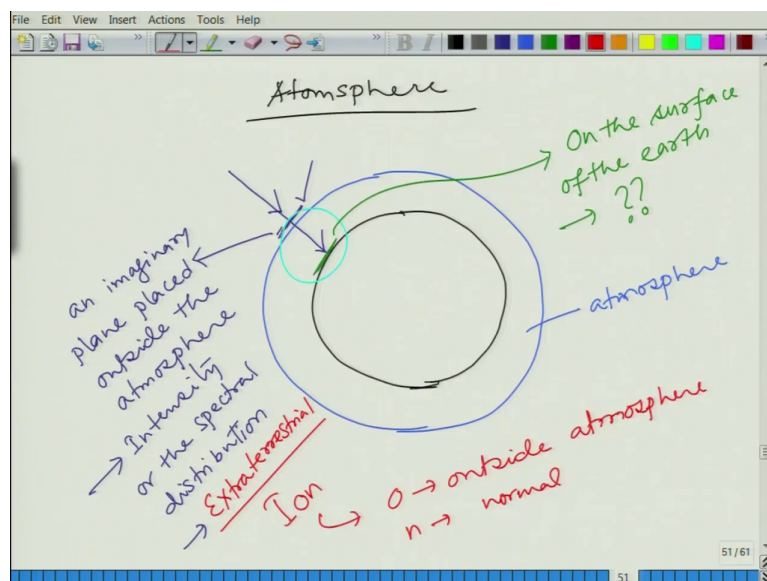 File Edit View Insert Actions Tools Help
B I
Atomsphere
On the surface
of the earth
→ ??
atmosphere
an imaginary
plane placed
outside the
atmosphere
→ Intensity
or the spectral
distribution
→ Extraterrestrial
Ion
O → outside atmosphere
n → normal
51/61
51